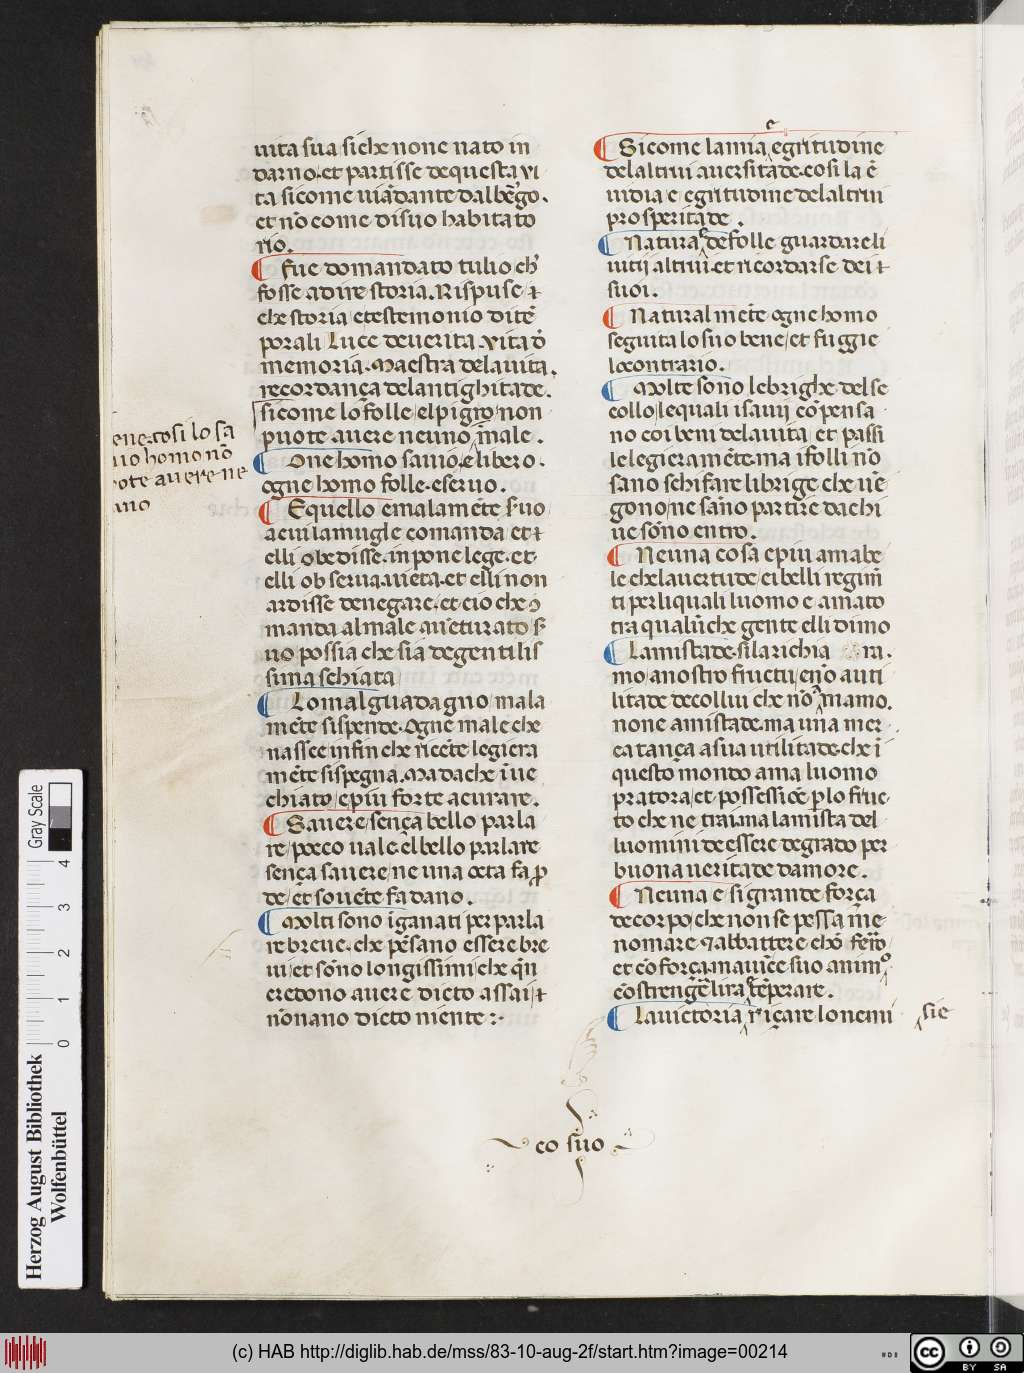 uita sua siche none nato in
darno. et partisse dequesta vi
ta sicome uiādante dalb̄go.
et nō come disuo habitato
rio.
Fue domandato tulio ch̄
fosse adire storia. Rispuse ⁊
che storia etestemonio ditē
porali Luce deuerita. vita d̄
memoria. Maestra delauita.
recordança delantighitade.
sicome lo folle elpigro non
puote auere neuno male.
One homo sauio. e libero.
ogne homo folle. eseruo.
Equello emalamēte suo
acui lamugle comanda et ⁊
elli obedisse. inpone lege. et
elli obserua. uieta. et elli non
ardisse denegare. et cio che
manda almale auēturato
uo possia che sia degentilis
sima schiata
Lomal guadagno mala
mēte sispende. Ogne male che
nasse infin che ricēte legiera
mēte sispegna. Ma dache īue
chiato epiu forte acurare.
Sauere sença bello parla
re pocco uale. el bello parlare
sença sauere ne una octa fa p̄
de et souēte fa dano.
Molti sono īganati per parla
re breue. che pēsano essere bre
ui et sono longissimi che q̄n
credono auere dicto assai ⁊
nōnano dicto niente :-
ene. cosi lo sa
uio homo nō
ote auere ne
uno
e
Sicome lamia egritudine
delaltrui auersitade. cosi la ē
uidia e egritudine delaltrui
prosperitade.
Natura de folle guardare li
uitij altrui et ricordarse dei ⁊
suoi.
Naturalmēte ogne homo
seguita lo suo bene et fuggie
locontrario.
Molte sono lebrighe delse
collo lequali isauij cōpensa
no coi beni delauita et passi
le legieramēte. ma ifolli nō
sano schifare librige che uē
gono ne sano partire da chi
ue sono entro.
Neuna cosa epiu amabe
le che lauertude. ei belli regim̄
ti per liquali luomo e amato
tra qualūche gente elli dimo
ra.
Lamistade. si larichia
mo anostro fructu enō auti
litade decollui che nō mamo.
none amistade. ma una mer
catança a sua utilitade. che ī
questo mondo ama luomo
pratora et possessiōe p lo fruc
to che ne trai. ma lamista del
luomini de essere de grado per
buona ueritade damore.
Neuna e si grande força
de corpo che non se possa me
nomare ⁊ abbattere chō ferro
et cō força. ma uīce suo animo
cōstrengere lira tēperare.
La uictoria riçare lo nemi
sie
co suo
Gray Scale
0 1 2 3 4
Herzog August Bibliothek
Wolfenbüttel
(c) HAB http://diglib.hab.de/mss/83-10-aug-2f/start.htm?image=00214
cc BY SA